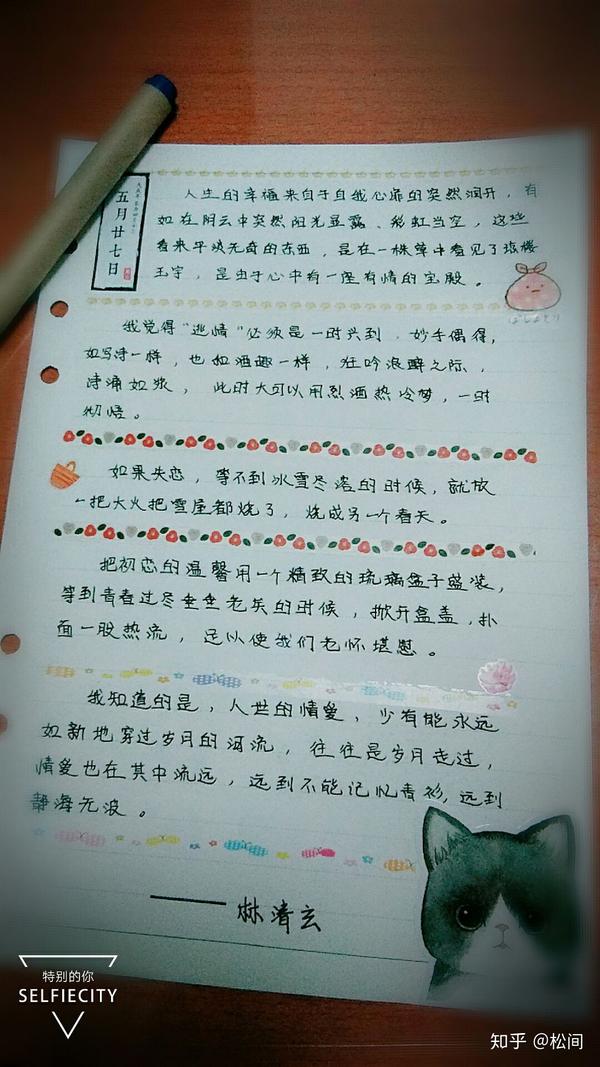 五月廿七日
人生的幸福来自于自我心扉的突然洞开，有
如在阴云中突然阳光显露、彩虹当空，这些
看来平淡无奇的东西，是在一株草中看见了琼楼
玉宇，是由于心中有一座有情的宝殿。
我觉得“逃情”必须是一时兴到，妙手偶得，
如写诗一样，也和酒趣一样，狂吟浪醉之际，
诗涌如浆，此时大可以用烈酒热冷梦，一时
彻悟。
如果失恋，等不到冰雪尽溶的时候，就放
一把大火把雪屋都烧了，烧成另一个春天。
把初恋的温馨用一个精致的琉璃盒子盛装，
等到青春过尽垂垂老矣的时候，掀开盒盖，扑
面一股热流，足以使我们老怀堪慰。
我知道的是，人世的情爱，少有能永远
如新地穿过岁月的河流，往往是岁月走过，
情爱也在其中流远，远到不能记忆青衫，远到
静海无波。
——林清玄
特别的你
SELFIECITY
知乎 @松间